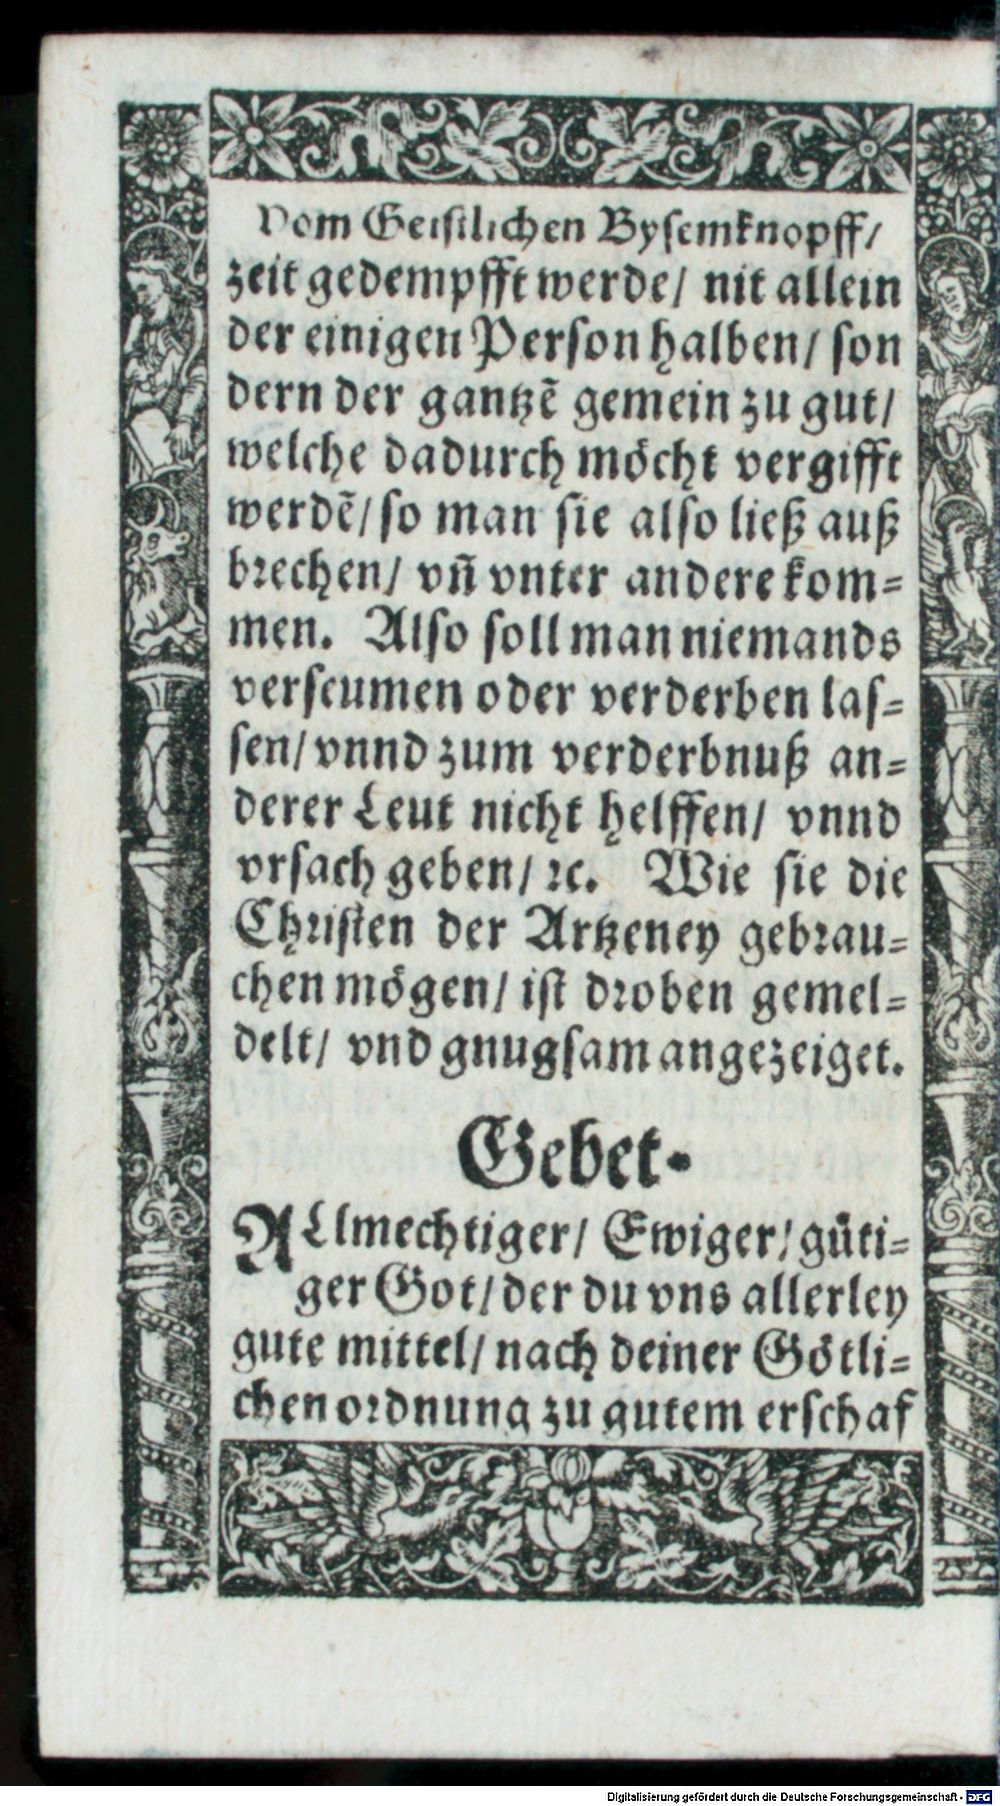 Vom Geistlichen Bysemknopff/
zeit gedempfft werde/ nit allein
der einigen Person halben/ son
dern der gantzẽ gemein zu gut/
welche dadurch möcht vergifft
werdẽ/ so man sie also ließ auß
brechen/ vñ vnter andere kom=
men. Also soll man niemands
verseumen oder verderben las=
sen/ vnnd zum verderbnuß an=
derer Leut nicht helffen/ vnnd
vrsach geben/ ꝛc. Wie sie die
Christen der Artzeney gebrau=
chen mögen/ ist droben gemel=
delt/ vnd gnugsam angezeiget.
Gebet.
ALlmechtiger/ Ewiger/ güti=
ger Got/ der du vns allerley
gute mittel/ nach deiner Götli=
chen ordnung zu gutem erschaf
Digitalisierung gefördert durch die Deutsche Forschungsgemeinschaft - DFG